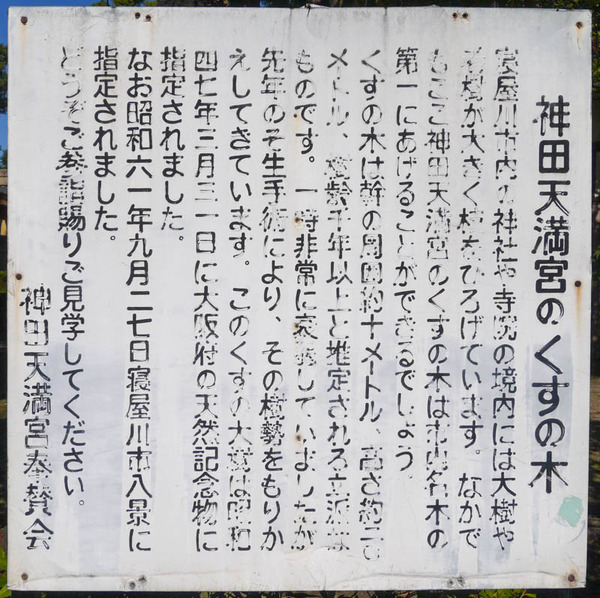 神田天満宮のくすの木
寝屋川市内の神社や寺院の境内には大樹や
老樹が大きく枝をひろげています。なかで
もここ神田天満宮のくすの木は市内名木の
第一にあげることができるでしょう。
くすの木は幹の周囲約十メートル、高さ約二〇
メートル、樹齢千年以上と推定される立派な
ものです。一時非常に衰弱していましたが
先年のそ生手術により、その樹勢をもりか
えしてきています。このくすの大樹は昭和
四七年三月三一日に大阪府の天然記念物に
指定されました。
なお昭和六一年九月二七日寝屋川市八景に
指定されました。
どうぞご参詣賜りご見学してください。
神田天満宮奉賛会